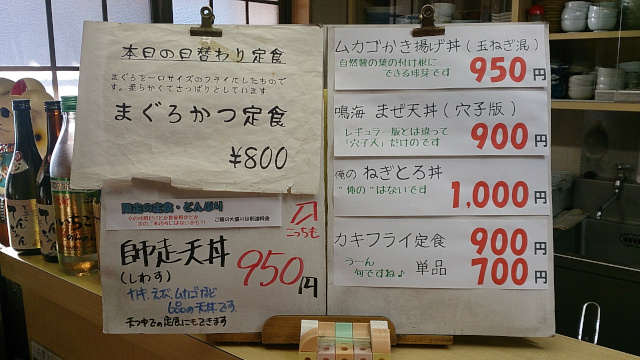 本日の日替わり定食
まぐろを一口サイズのフライにしたもので
す。柔らかくてさっぱりとしています
まぐろかつ定食
¥800
限定の定食・どんぶり
ご飯の大盛りは別途料金
こっちも
師走天丼
(しわす)
950円
カキ、えび、ムカゴなど
6品の天丼です
天つゆでの定食にもできます
ムカゴかき揚げ丼(玉ねぎ混)
自然薯の葉の付け根に
できる球芽です
950円
鳴海 まぜ天丼(穴子版)
レギュラー版とは違って
「穴子天」だけのです
900円
俺の ねぎとろ丼
"俺の"はないです
1,000円
カキフライ定食 900円
うーん
旬ですね♪
単品 700円